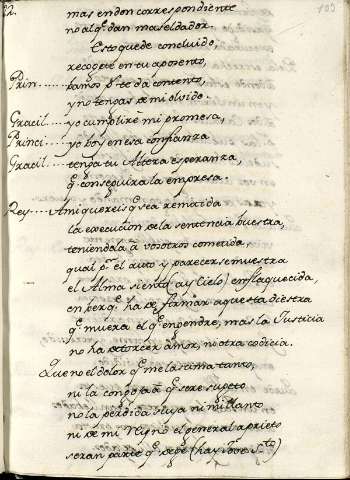 22.
103
mas en don correspondiente
no al q̃. dan mas el dador.
Esto quede concluido,
recogete en tu aposento,
Prin..... bamos q.e te dà contento,
y no tengas de mi olvido.
Gracil.... yo cumplirè mi promesa,
Princi.... yo boy en esa confianza
Gracil.... tenga tu Alteza esperanza,
q̃. conseguira la empresa.
Rey.... A mi quereis q̃. sea remitida
la execucion de la sentencia vuestra,
teniendola à vosotros cometida,
qual p.r el auto y parecer se muestra
el Alma siento (ay Cielo) enflaquecida,
en ber q̃. ha de firmar aquesta diestra
q̃. muera el q̃. engendrè, mas la Justicia
no ha de torcer amor, ni otra codicia.
Que no el dolor q̃. me lastima tanto,
ni la congoxa à q̃. serè sugeto
no la perdida suya ni mi llanto
ni de mi Reyno el general aprieto
seran parte q̃. dege (hay Jove S.to)